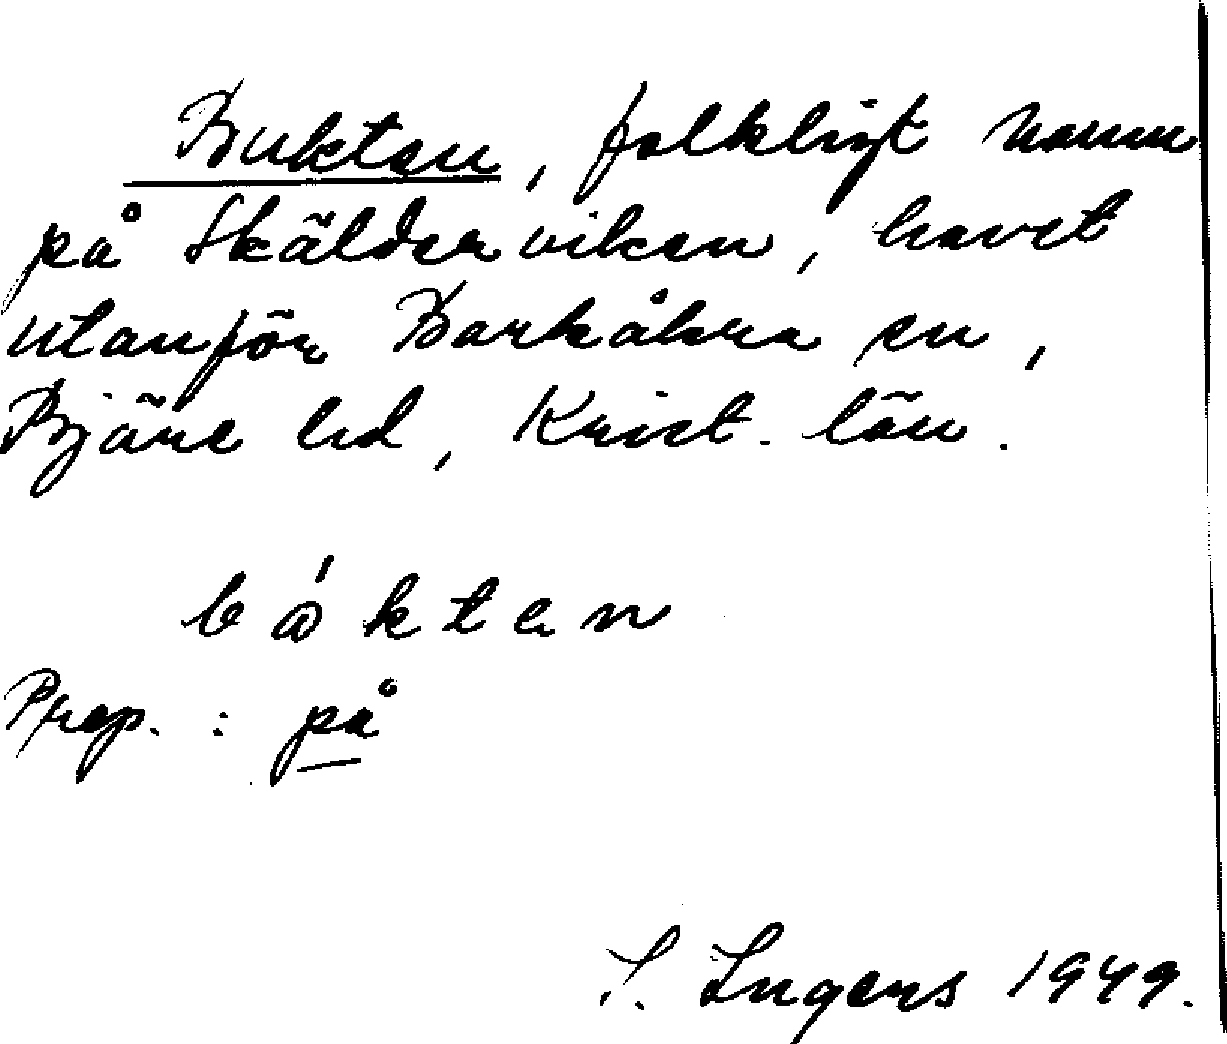 Bukten, folkligt namn
på Skälderviken, havet
utanför Barkåkra sn,
Bjäre hd, Krist. län.
bákten
Prep. : på
I. Ingers 1949.